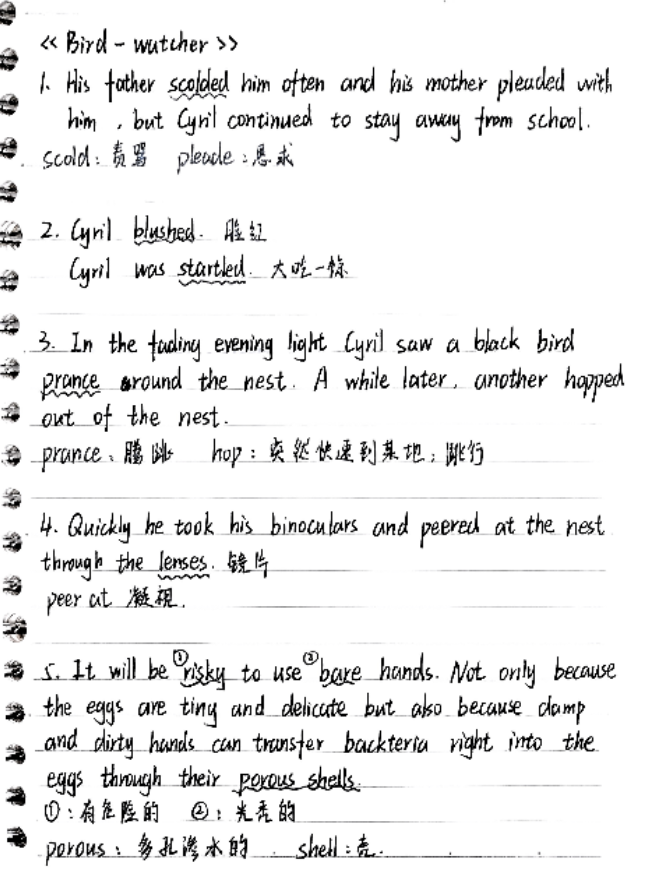 << Bird - watcher >>
1. His father scolded him often and his mother pleaded with
him , but Cyril continued to stay away from school.
scold : 责骂 pleade : 恳求
2. Cyril blushed. 脸红
Cyril was startled. 大吃一惊
3. In the fading evening light Cyril saw a black bird
prance around the nest. A while later, another hopped
out of the nest.
prance : 腾跳 hop : 突然快速到某地; 跳行
4. Quickly he took his binoculars and peered at the nest
through the lenses. 镜片
peer at 凝视.
5. It will be ①risky to use ②bare hands. Not only because
the eggs are tiny and delicate but also because damp
and dirty hands can transfer backteria right into the
eggs through their porous shells.
①: 有危险的 ②: 光秃的
porous : 多孔渗水的 . shell : 壳.